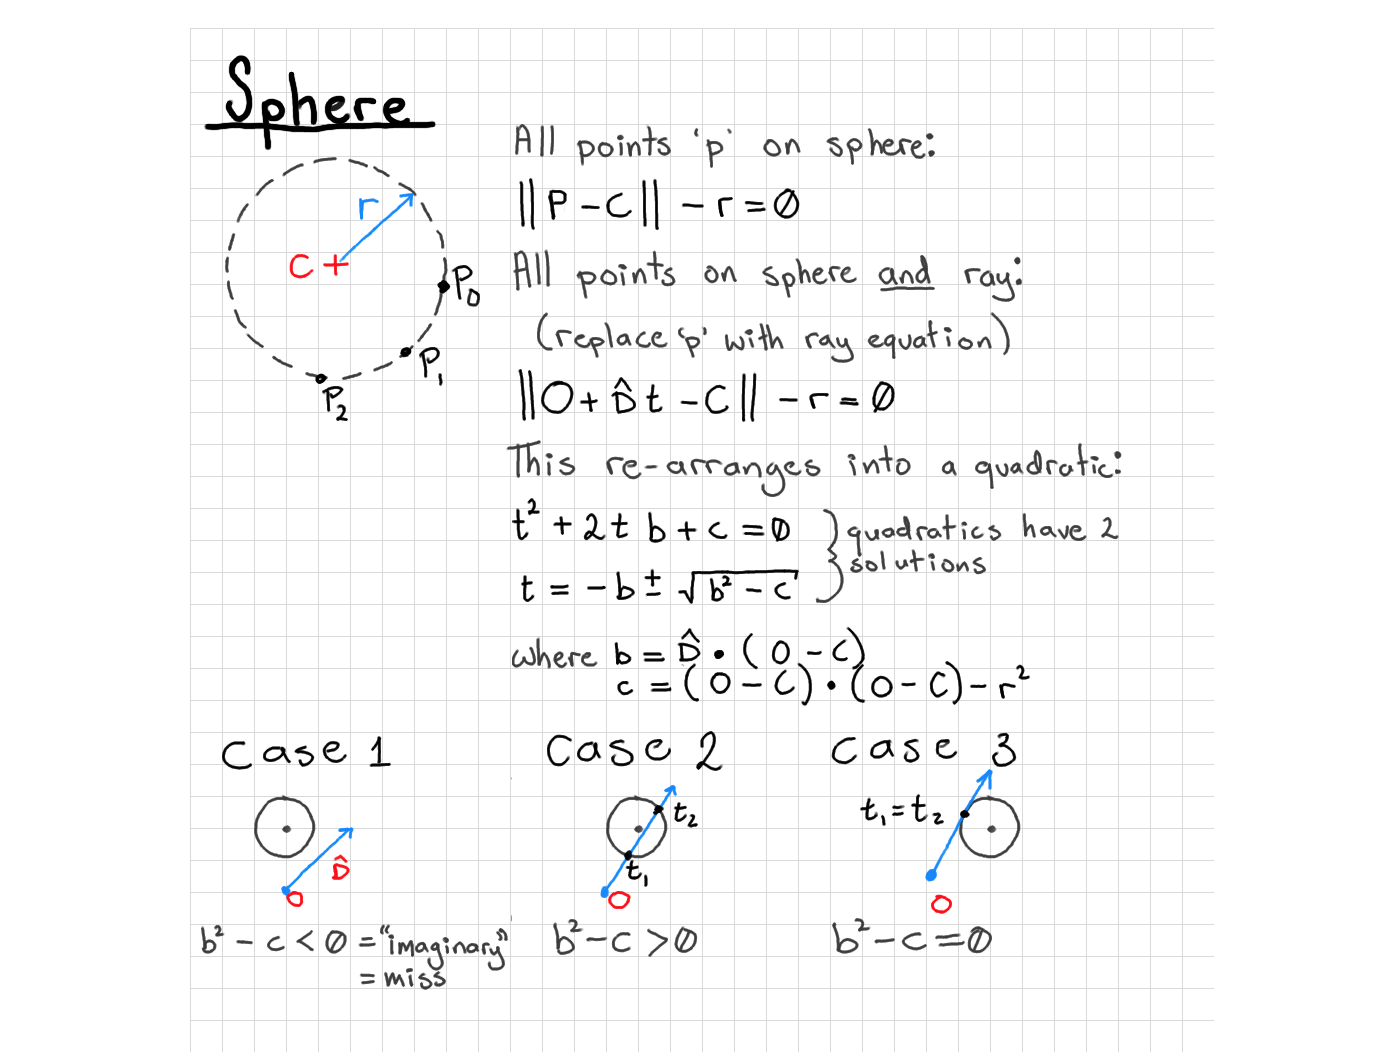 Sphere
All points 'p' on sphere:
||P - C|| - r = 0
r
C +
P0
P1
P2
All points on sphere and ray:
(replace 'p' with ray equation)
||O + D̂ t - C|| - r = 0
This re-arranges into a quadratic:
t² + 2t b + c = 0
t = -b ± √(b² - c)
} quadratics have 2
solutions
where b = D̂ · (O - C)
c = (O - C) · (O - C) - r²
Case 1
D̂
O
b² - c < 0 = "imaginary"
= miss
Case 2
t2
t1
O
b² - c > 0
Case 3
t1 = t2
O
b² - c = 0